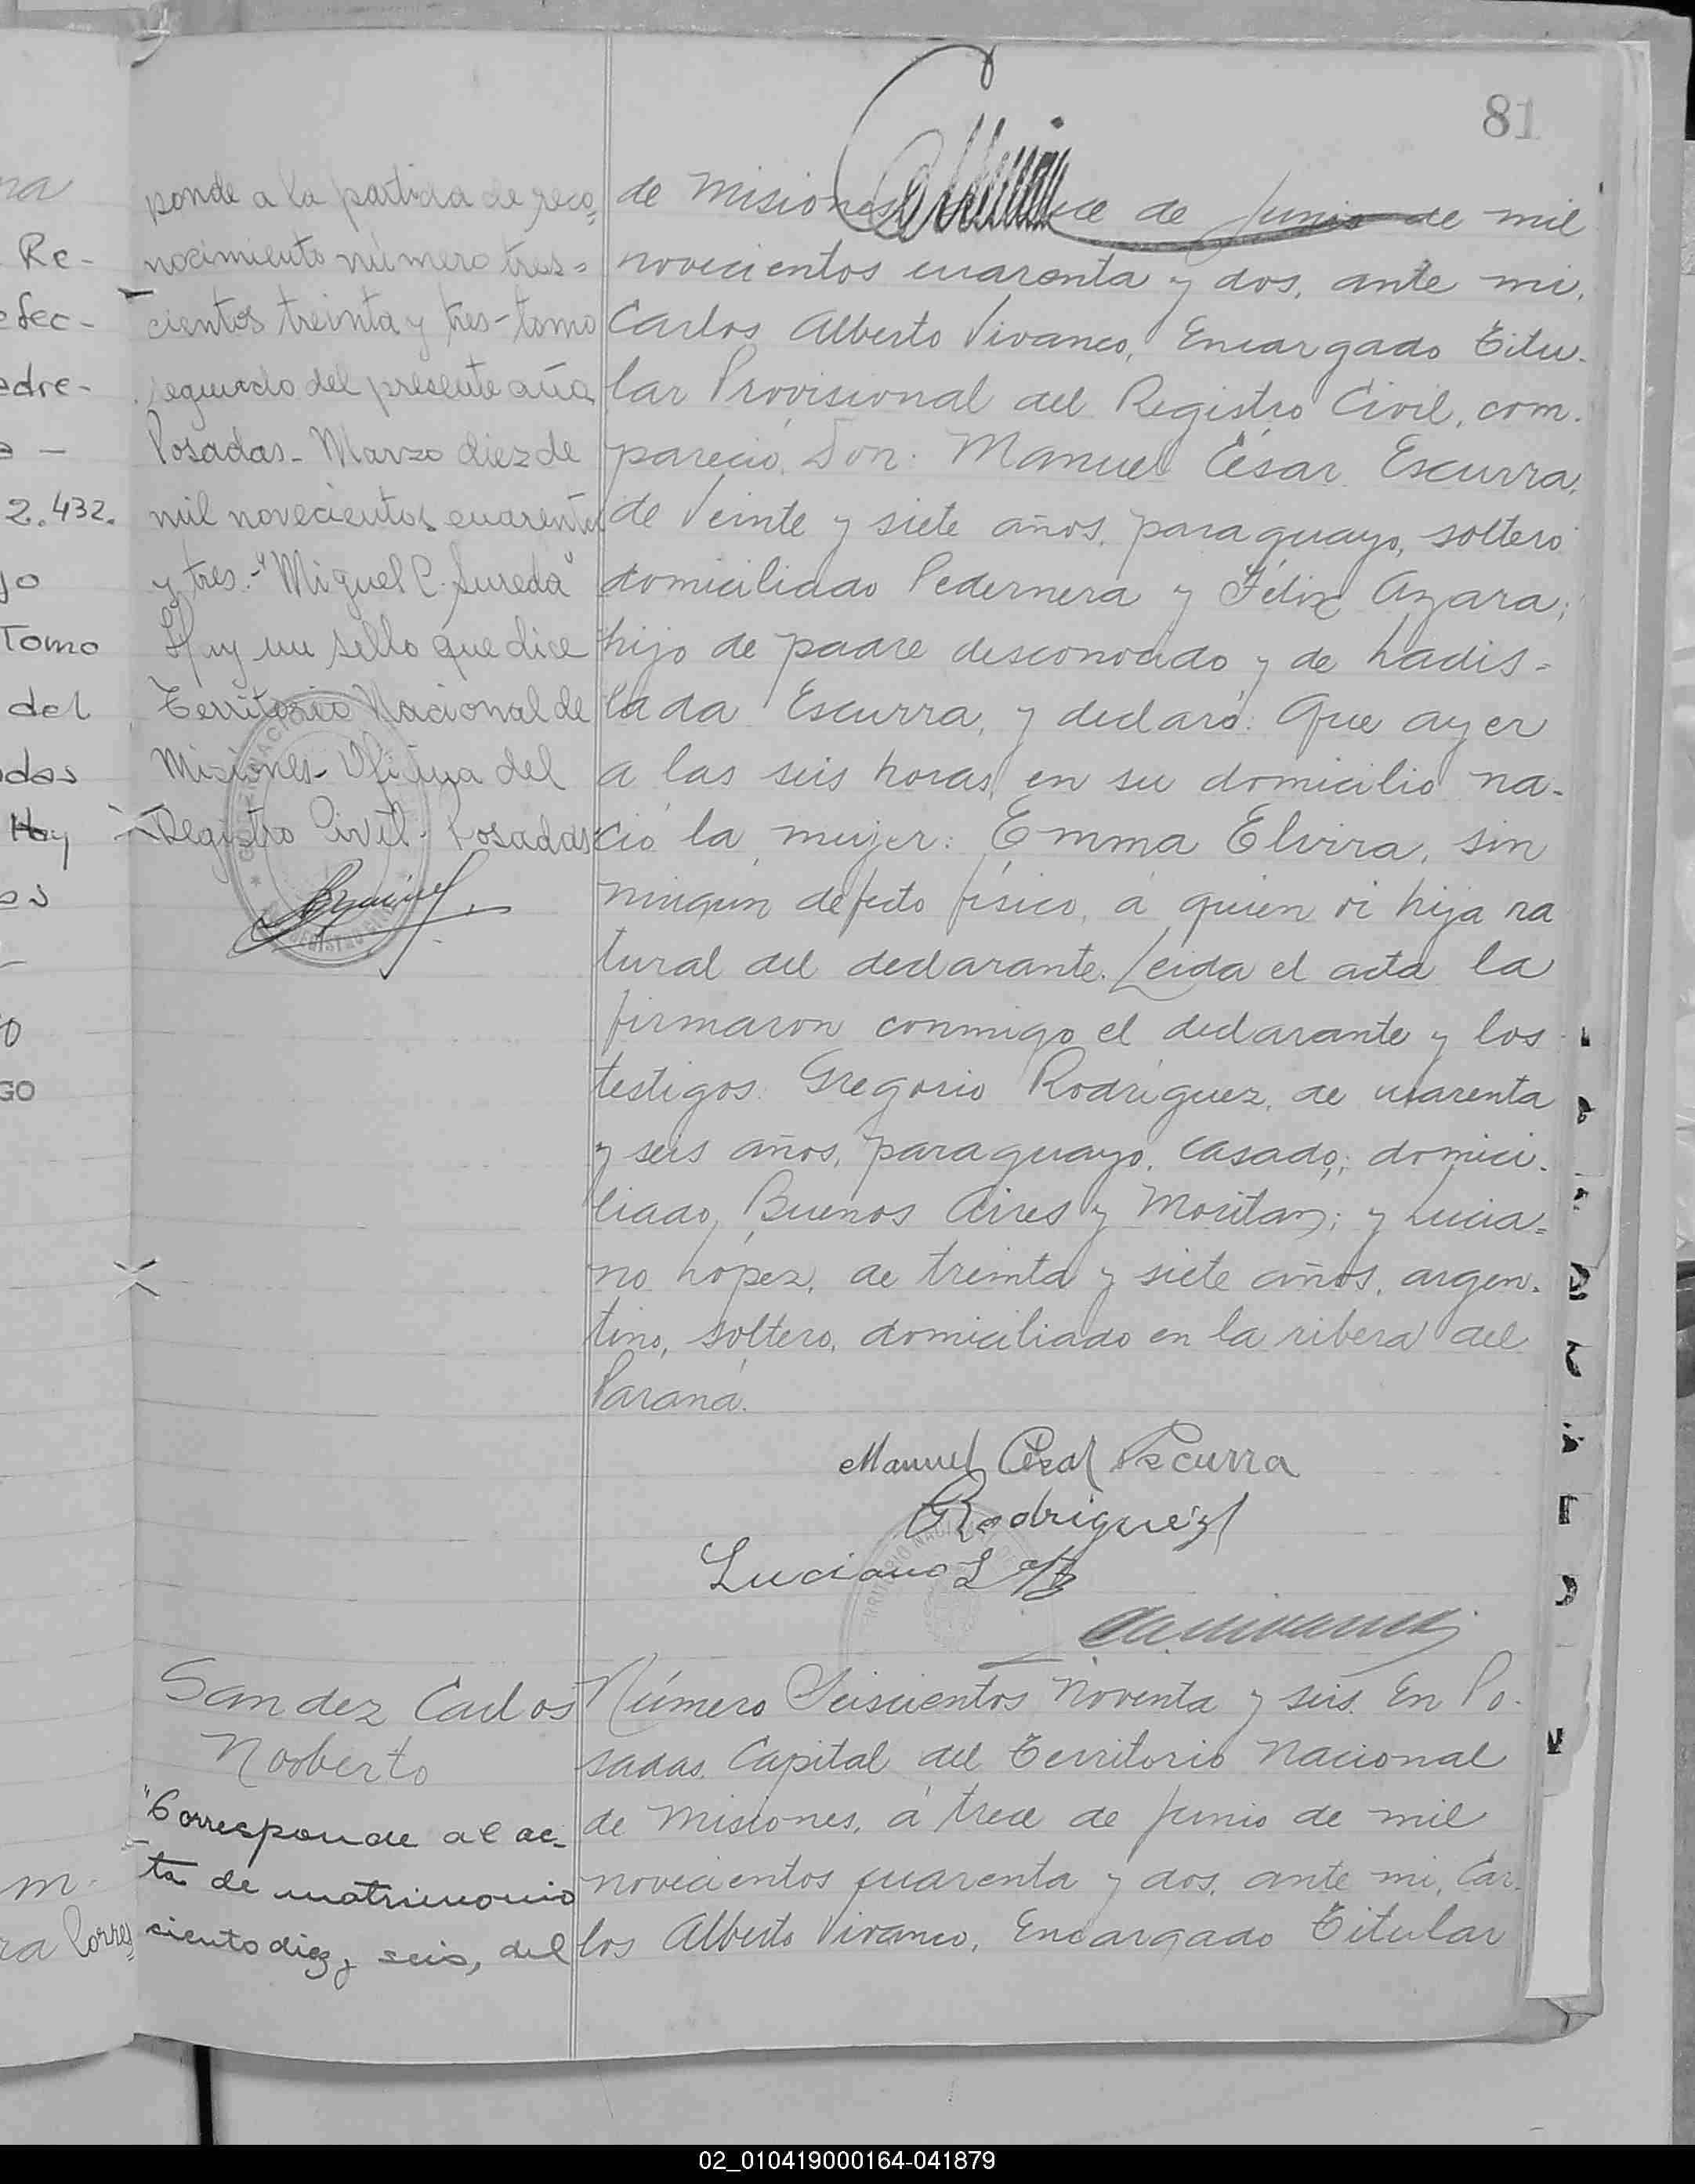 81
ponde a la partida de reco=
nocimiento número tres=
cientos treinta y tres- tomo
segundo del presente año
Posadas- Marzo diez de
mil novecientos cuarenta
y tres.- "Miguel C. Sureda"
Hay un sello que dice
Territorio Nacional de
Misiones- Oficina del
Registro Civil- Posadas
de Misiones, de Junio de mil
novecientos cuarenta y dos, ante mi,
Carlos Alberto Vivanco, Encargado Titu-
lar Provisional del Registro Civil, com-
pareció, Don: Manuel César Escurra,
de veinte y siete años, paraguayo, soltero
domiciliado Pedernera y Félix Azara;
hijo de padre desconocido y de Ladis=
lada Escurra, y declaró: Que ayer
a las seis horas, en su domicilio na-
ció la mujer: Emma Elvira, sin
ningún defecto físico, á quien vi hija na
tural del declarante. Leída el acta la
firmaron conmigo el declarante y los
testigos: Gregorio Rodríguez, de cuarenta
y seis años, paraguayo, casado; domici-
liado, Buenos Aires y ; y Lucia=
no López, de treinta y siete años, argen-
tino, soltero, domiciliado en la ribera del
Paraná.
Manuel César Escurra
GRodriguez
Luciano L
Sandez Carlos
Norberto
"Corresponde al ac-
ta de matrimonio
ciento diez y seis, del
Número Seiscientos noventa y seis. En Po-
sadas, Capital del Territorio Nacional
de Misiones, á trece de Junio de mil
novecientos cuarenta y dos, ante mi, Car-
los Alberto Vivanco, Encargado Titular
na
Re-
efec-
edre-
2.432.
Tomo
del
Hay
GO
m-
ra Corres
02_010419000164-041879